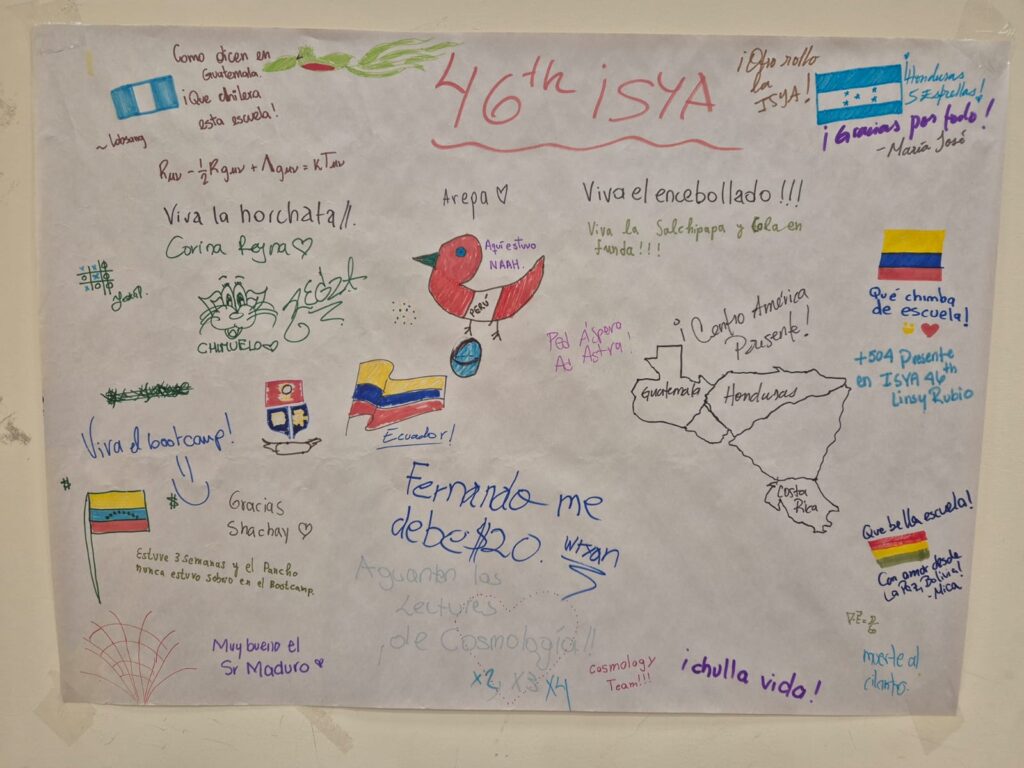 46th ISYA
Como dicen en
Guatemala.
¡Que chilera
esta escuela!
~ Lobsang
¡Otro rollo
la
ISYA!
Honduras
5 Estrellas!
¡Gracias por todo!
- María José
Rμν - ½ Rgμν + Λgμν = κTμν
Viva la horchata!!.
Corina Reyna ♡
Arepa ♡
Viva el encebollado !!!
Viva la Salchipapa y Cola en
funda!!!
Aquí estuvo
NAAH.
PERÚ
CHIMUELO ♡
Qué chimba
de escuela!
Pad Áspero
Ad Astra!
¡Centro América
Presente!
Guatemala
Honduras
Costa
Rica
+504 Presente
en ISYA 46th
Linsy Rubio
Ecuador!
Viva el bootcamp!
$
$
Gracias
Shachay ♡
Estuve 3 semanas y el Pancho
nunca estuvo sobrio en el Bootcamp.
Fernando me
debe $20.
Aguanten las
Lectures
¡de Cosmología!!
x2, x3 x4
Cosmology
Team!!!
Que bella escuela!
Con amor desde
La Paz, Bolivia!
- Mica
Muy bueno el
Sr Maduro
¡chulla vida!
muerte al
cilantro.